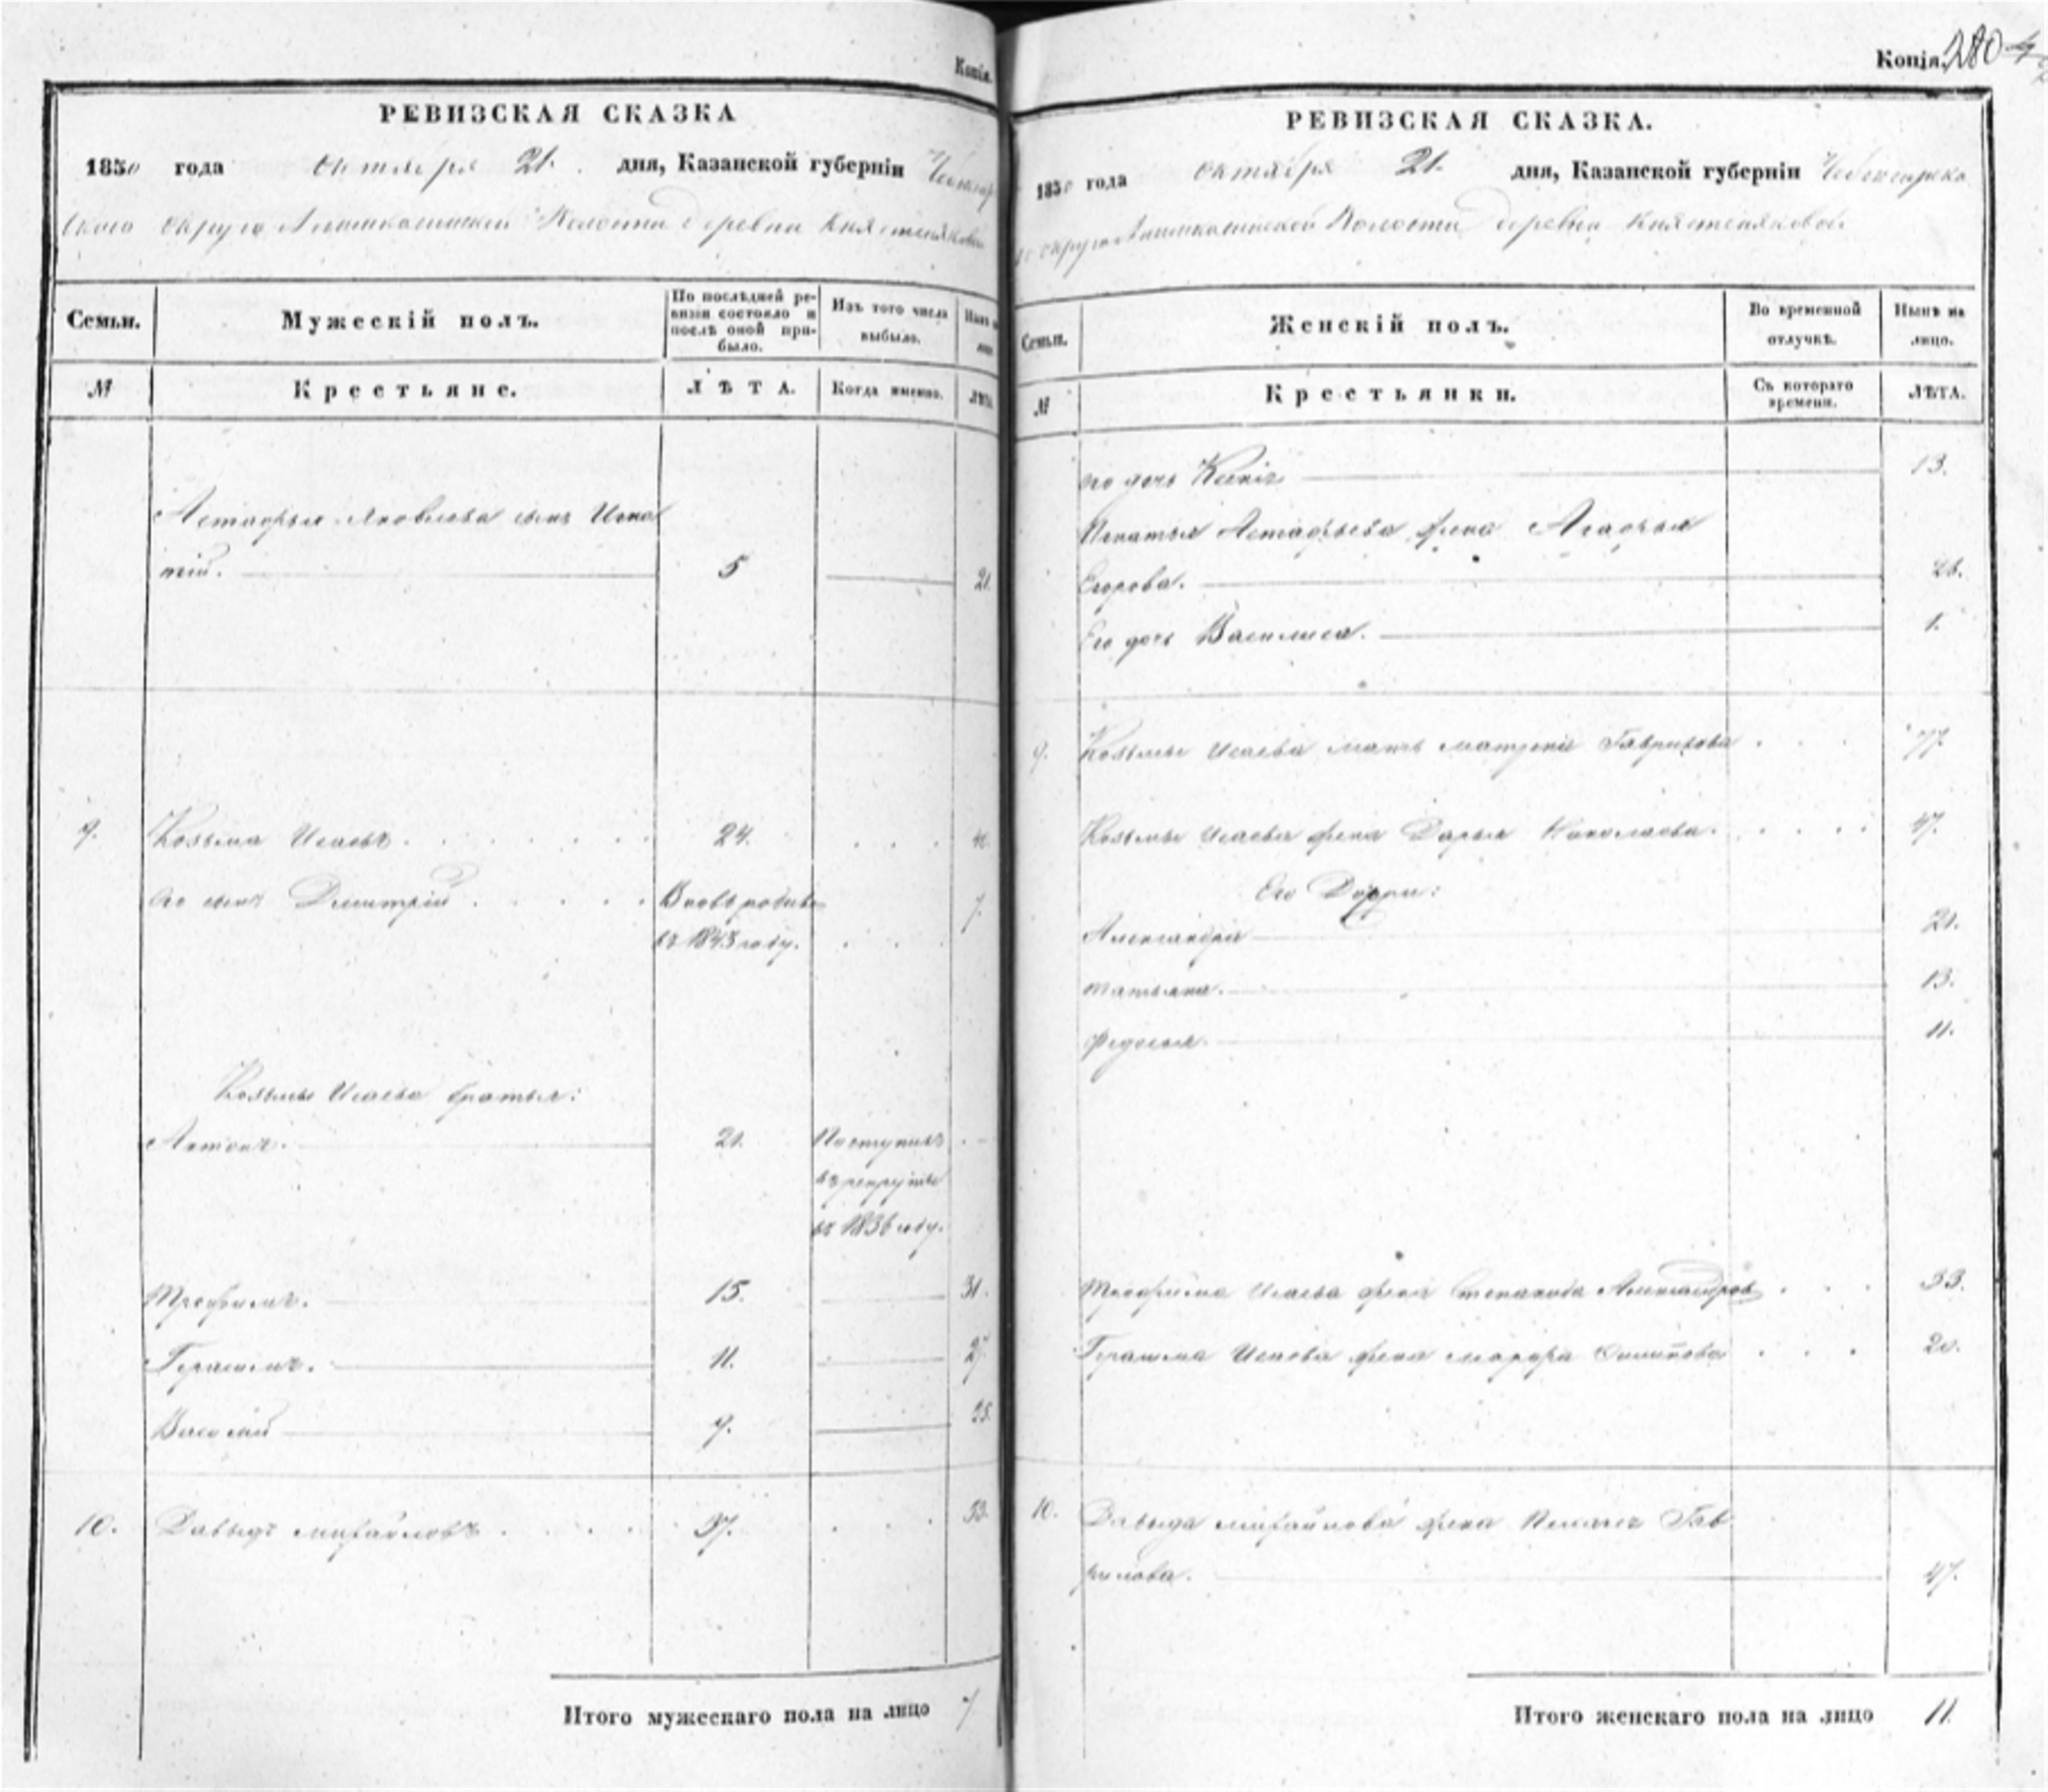 Копія.
РЕВИЗСКАЯ СКАЗКА
1850 года Октября 21. дня, Казанской губерніи Чебоксар
скаго округа Волости деревни
Семьи.
Мужескій полъ.
По послѣдней ре-
визіи состояло и
послѣ оной при-
было.
Изъ того числа
выбыло.
Нынѣ
№
Крестьяне.
ЛѢТА.
Когда именно.
ЛѢТА
Астафья Яковлева сынъ Игна
тій. 5 21.
9. Козьма Исаевъ 24. 40.
его сынъ Дмитрій Вновь родив 7.
въ 1843 году.
Козьмы Исаева братья:
Антонъ. 21. Поступилъ
въ рекруты
въ 1836 году.
Трофимъ. 15. 31.
Герасимъ. 11. 27.
Василій 9. 25.
10. Давыдъ Михайловъ 37. 53.
Итого мужескаго пола на лицо 7
Копія. 280
РЕВИЗСКАЯ СКАЗКА.
1850 года Октября 21. дня, Казанской губерніи Чебоксарска
го округа Волости деревни
Семьи.
Женскій полъ.
Во временной
отлучкѣ.
Нынѣ на
лицо.
№
Крестьянки.
Съ котораго
времени.
ЛѢТА.
его дочь Ксенія 13.
Игнатья Астафьева жена Агафья
Егорова. 26.
Его дочь Василиса. 1.
9. Козьмы Исаева мать Матрена Гаврилова 77.
Козьмы Исаева жена Дарья Николаева. 47.
Его Дочери:
Александра 21.
Татьяна. 13.
Федосья. 11.
Трофима Исаева жена Степанида Александров 33.
Герасима Исаева жена Марфа 20.
10. Давыда Михайлова жена Пелагея Гав
рилова. 47.
Итого женскаго пола на лицо 11.